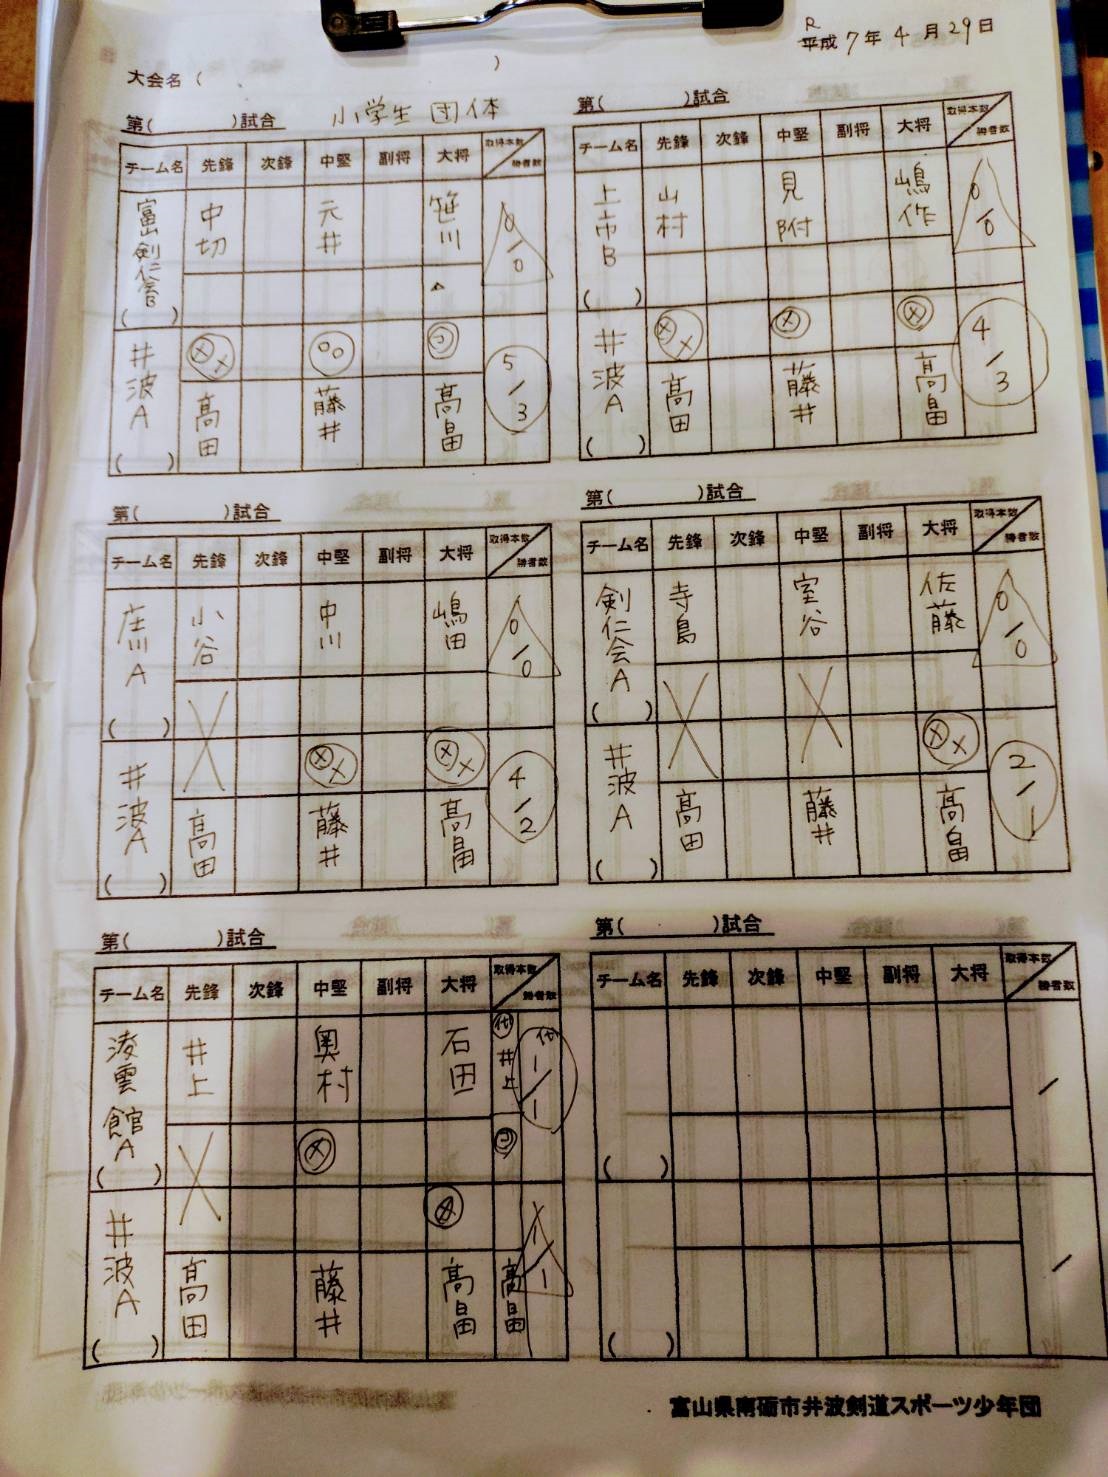 R
平成 7年 4月 29日
大会名 ( )
第( )試合 小学生 団体
チーム名 先鋒 次鋒 中堅 副将 大将 取得本数/勝者数
中切 元井 笹川 0/0
( )
井波A 5/3
( ) 髙田 藤井 髙畠
第( )試合
チーム名 先鋒 次鋒 中堅 副将 大将 取得本数/勝者数
上市B 山村 見附 嶋作 0/0
( )
井波A 4/3
( ) 髙田 藤井 髙畠
第( )試合
チーム名 先鋒 次鋒 中堅 副将 大将 取得本数/勝者数
庄川A 小谷 中川 嶋田 0/0
( )
井波A 4/2
( ) 髙田 藤井 髙畠
第( )試合
チーム名 先鋒 次鋒 中堅 副将 大将 取得本数/勝者数
剣仁会A 寺島 室谷 佐藤 0/0
( )
井波A 2/1
( ) 髙田 藤井 髙畠
第( )試合
チーム名 先鋒 次鋒 中堅 副将 大将 取得本数/勝者数
凌雲館A 井上 奥村 石田 代 井上 代 1/1
( )
井波A 1/1
( ) 髙田 藤井 髙畠 髙畠
第( )試合
チーム名 先鋒 次鋒 中堅 副将 大将 取得本数/勝者数
( ) /
( ) /
富山県南砺市井波剣道スポーツ少年団